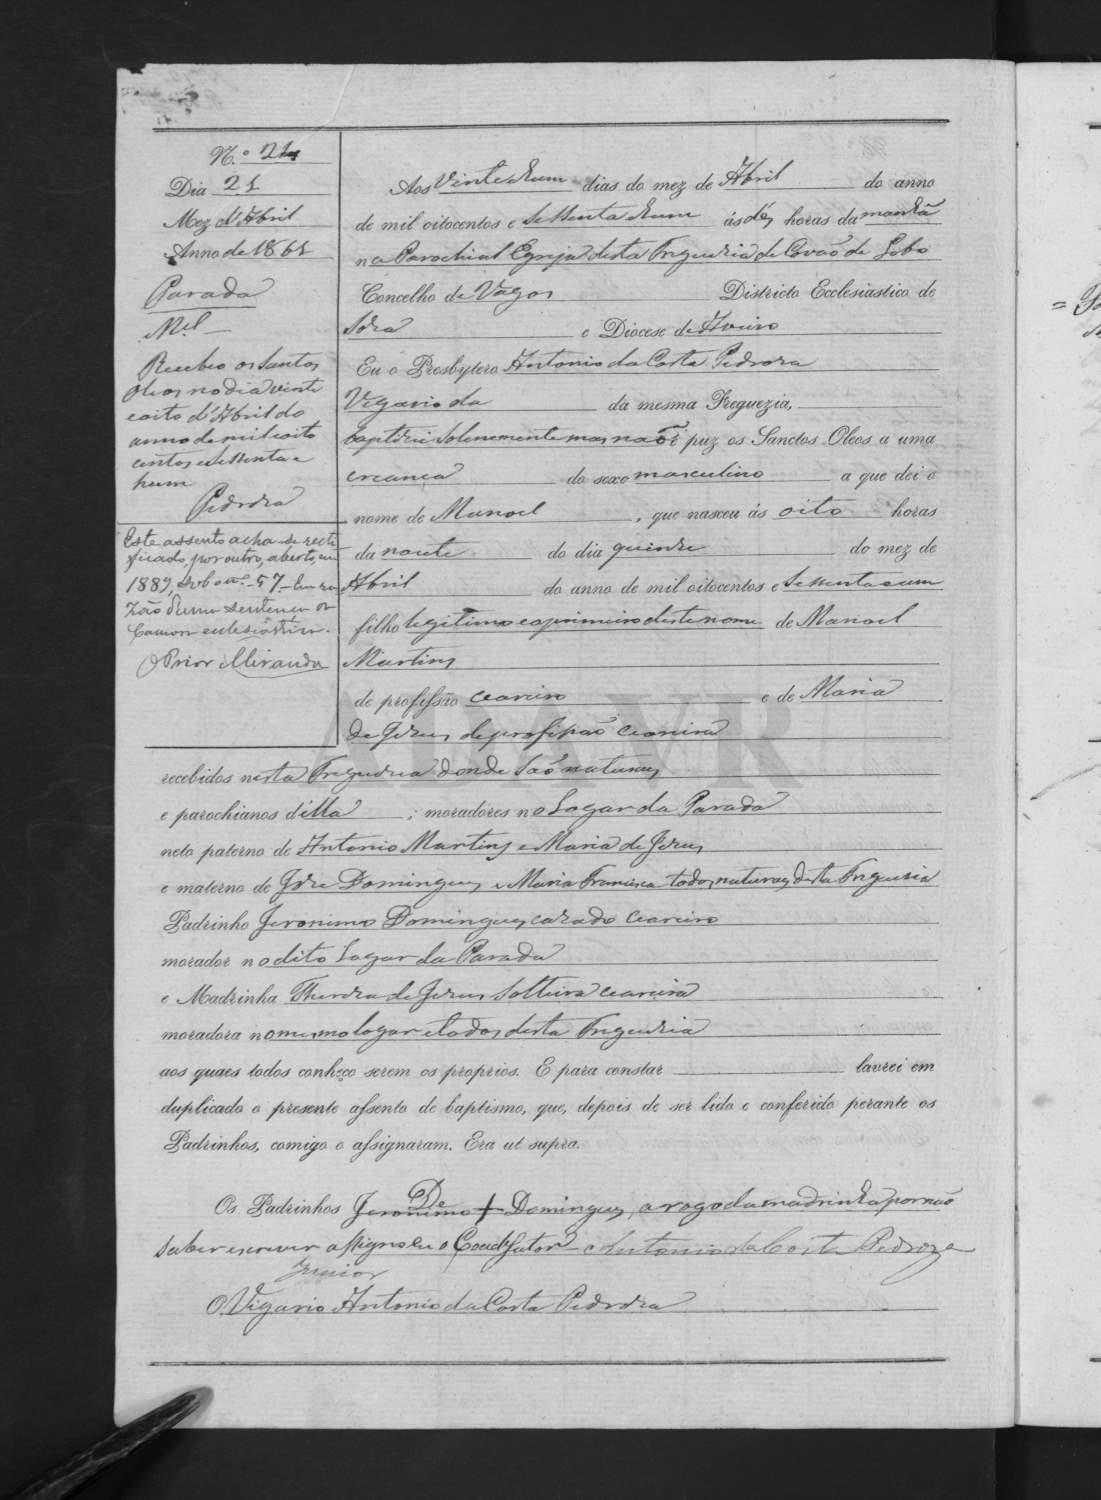 N.º 21
Dia 21
Mez d'Abril
Anno de 1861
Parada
Mel
Recebeo os Santos
Oleos no dia vinte
e oito d'Abril do
anno de mil e oito
centos e sessenta e
hum
Pedroza
Este assento acha-se recti
ficado, por outro, aberto, em
1889, sob o nº 57 - em ra
zão d'uma sentença
ecclesiastica.
O Prior Miranda
Aos vinte e hum dias do mez de Abril do anno
de mil oitocentos e sessenta e hum ás dés horas da manhã
na Parochial Egreja desta Freguezia de Covaõ do Lobo
Concelho de Vagos Districto Ecclesiastico de
Soza e Diocese de Aveiro
Eu o Presbytero Antonio da Costa Pedroza
Vigario da da mesma Freguezia,
baptizei solenemente mas naõ puz os Sanctos Oleos a uma
creanca do sexo masculino a que dei o
nome de Manoel, que nasceu ás oito horas
da noute do dia quinze do mez de
Abril do anno de mil oitocentos e sessenta e um
filho legitimo e o primeiro deste nome de Manoel
Martins
de profissão ceareiro e de Maria
de Jezus, de profissaõ ceareira
recebidos nesta Freguezia donde saõ naturaes
e parochianos d'ella; moradores no Logar da Parada
neto paterno de Antonio Martins e Maria de Jezus
e materno de Joze Domingues e Maria Francisca todos naturaes desta Freguezia
Padrinho Jeronimo Domingues, cazado ceareiro
morador no dito Logar da Parada
e Madrinha Thereza de Jezus Solteira ceareira
moradora no mesmo logar e todos desta Freguezia
aos quaes todos conheço serem os proprios. E para constar lavrei em
duplicado o presente assento de baptismo, que, depois de ser lido e conferido perante os
Padrinhos, comigo o assignaram. Era ut supra.
Os Padrinhos Jeronimo De + Domingues, a rogo da madrinha por naõ
saber escrever assigno eu o Coadjutor Antonio da Costa Pedroza
Junior
O Vigario Antonio da Costa Pedroza
ADAVR